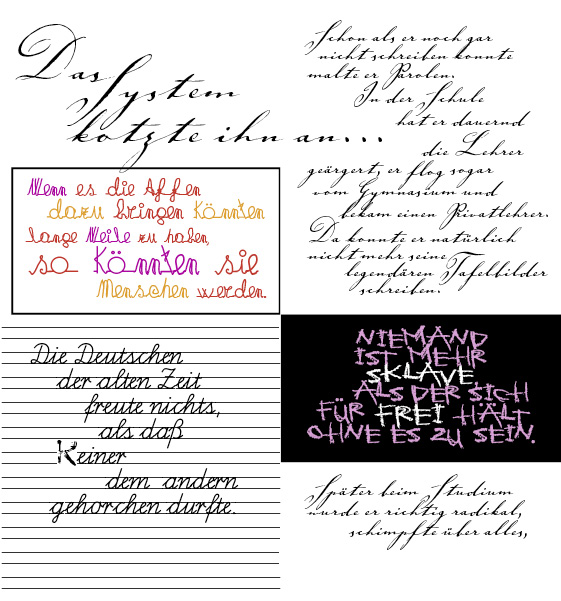 Das
System
kotzte ihn an...
Wenn es die Affen
dazu bringen könnten
lange Weile zu haben,
so könnten sie
Menschen werden.
Die Deutschen
der alten Zeit
freute nichts,
als daß
Keiner
dem andern
gehorchen durfte.
Schon als er noch gar
nicht schreiben konnte
malte er Parolen.
In der Schule
hat er dauernd
die Lehrer
geärgert, er flog sogar
vom Gymnasium und
bekam einen Privatlehrer.
Da konnte er natürlich
nicht mehr seine
legendären Tafelbilder
schreiben.
NIEMAND
IST MEHR
SKLAVE,
ALS DER SICH
FÜR FREI HÄLT
OHNE ES ZU SEIN.
Später beim Studium
wurde er richtig radikal,
schimpfte über alles,